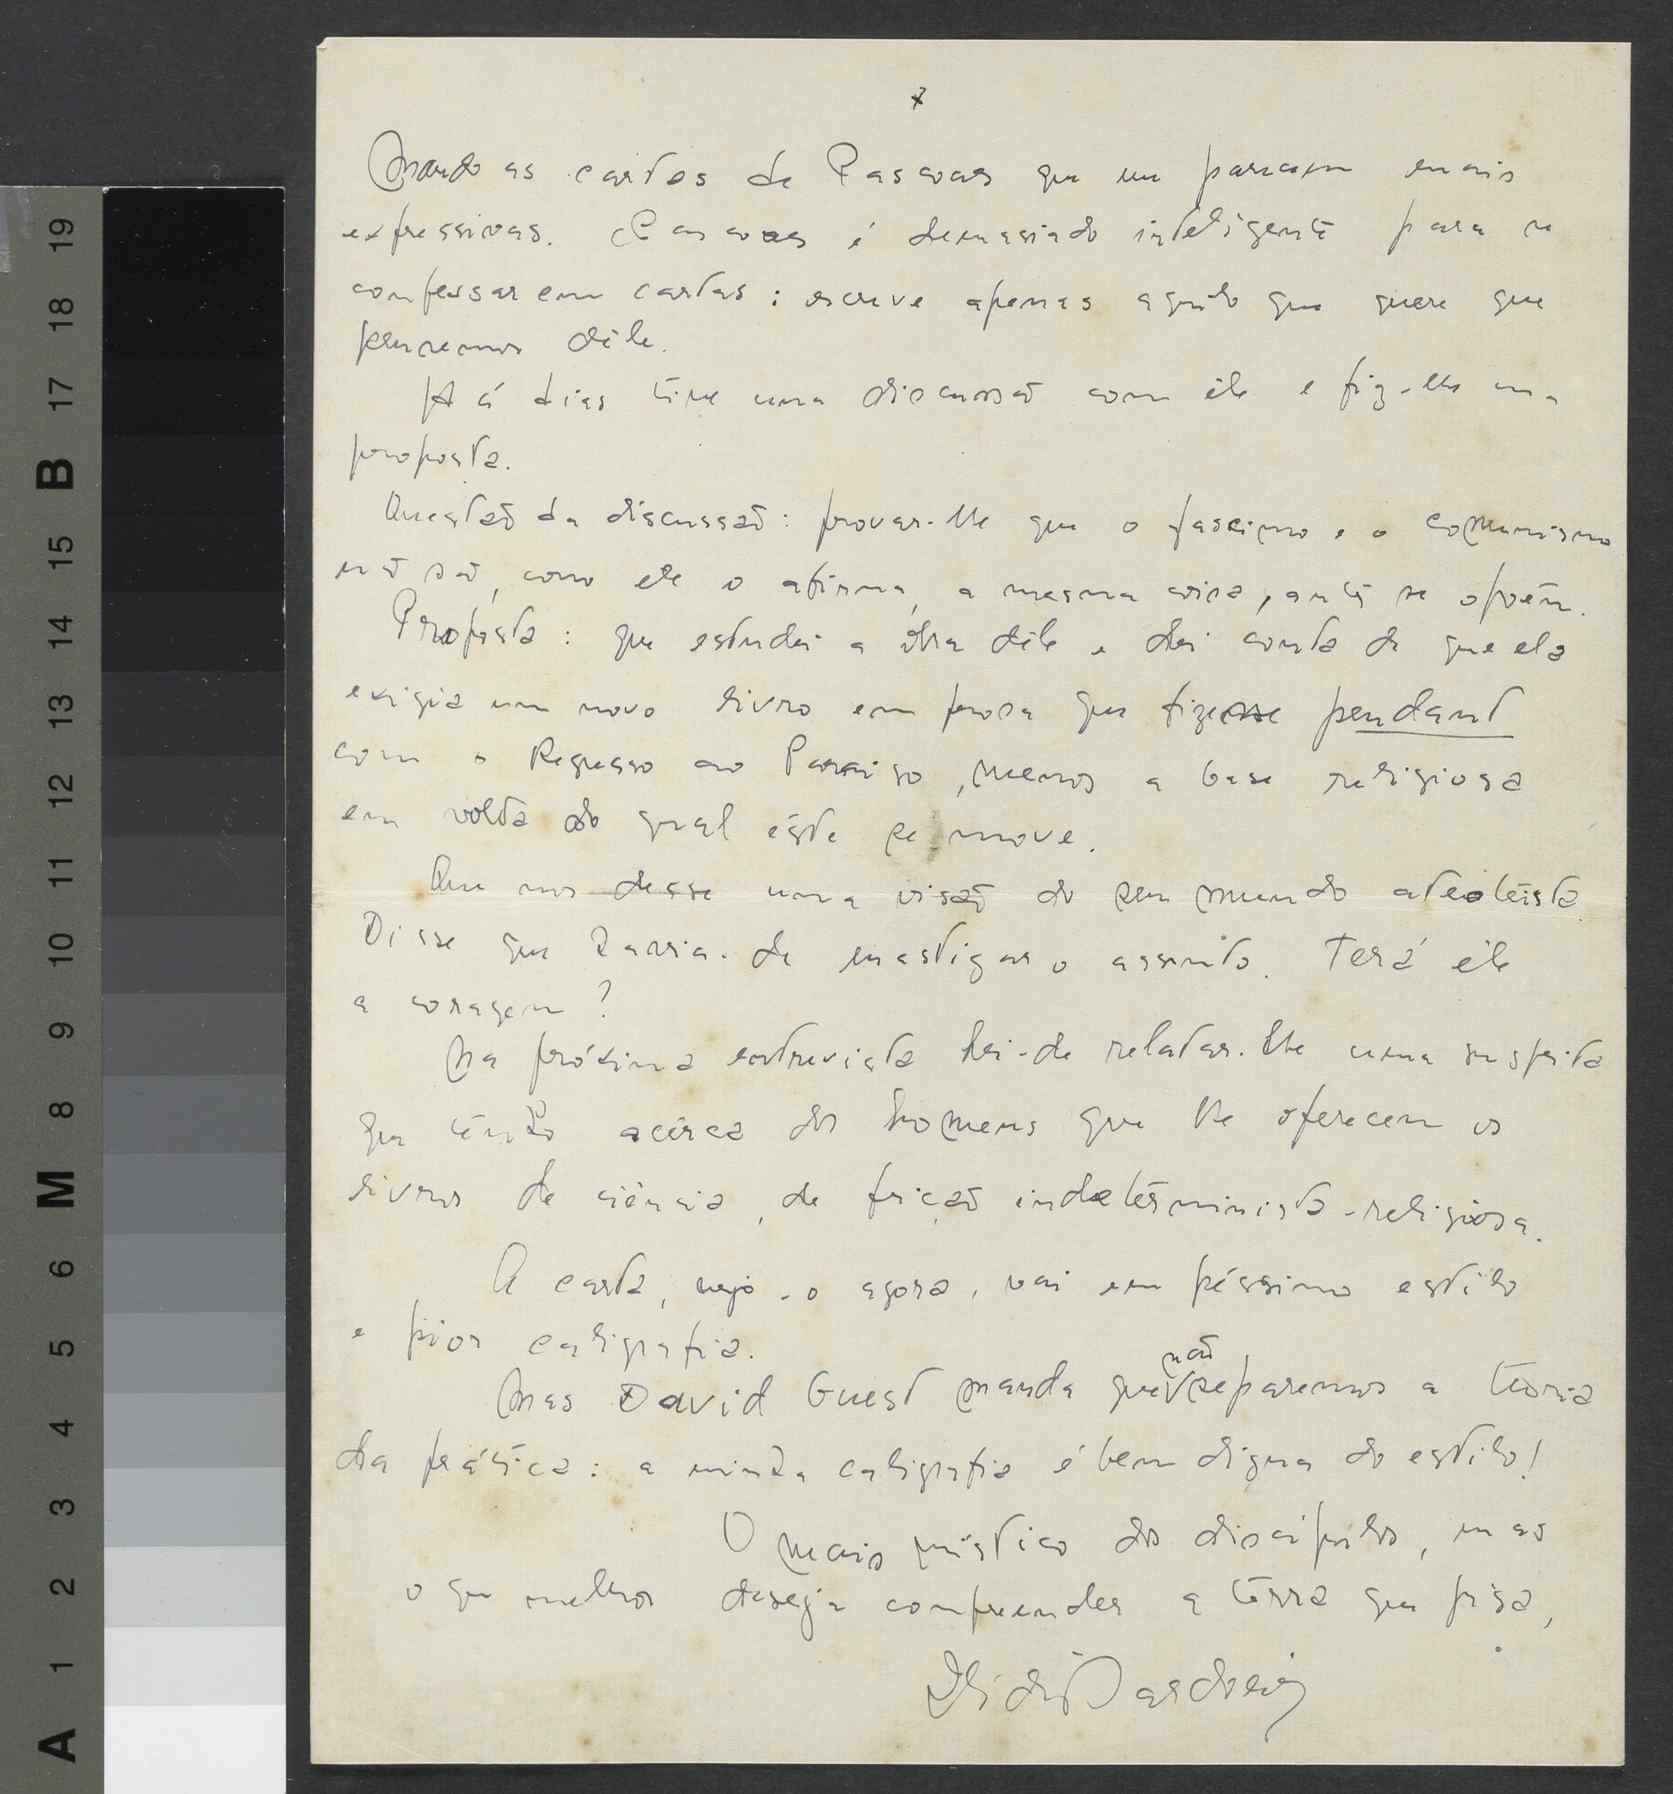 x
Mando as cartas de Pascoaes que me parecem mais
expressivas. Pascoaes é demasiado inteligente para se
confessar em cartas: escreve apenas aquilo que quere que
pensemos dêle.
Há dias tive uma discussaõ com êle e fiz-lhe uma
proposta.
Questaõ da discussaõ: provar-lhe que o fascimo e o comunismo
naõ saõ, como ele o afirma, a mesma coisa, antes se opoêm.
Proposta: que estudei a obra dêle e dei conta de que ela
exigia um novo livro em prosa que fizesse pendant
com o Regresso ao Paraiso, menos a base religiosa
em volta do qual êste se move.
Que nos desse uma visaõ do seu mundo ateoteísta.
Disse que havia-de mastigar o assunto. Terá êle
a coragem?
Na próxima entrevista hei-de relatar-lhe uma suspeita
que tenho acêrca dos homens que lhe oferecem os
livros de ciência, de feiçaõ indeterminista-religiosa.
A carta, vejo-o agora, vai em péssimo estilo
e pior caligrafia.
Mas David Guest manda que não separemos a teoria
da prática: a minha caligrafia é bem digna do estilo!
O mais místico dos discípulos, mas
o que melhor deseja compreender a terra que pisa,
Ilídio Sardoeira